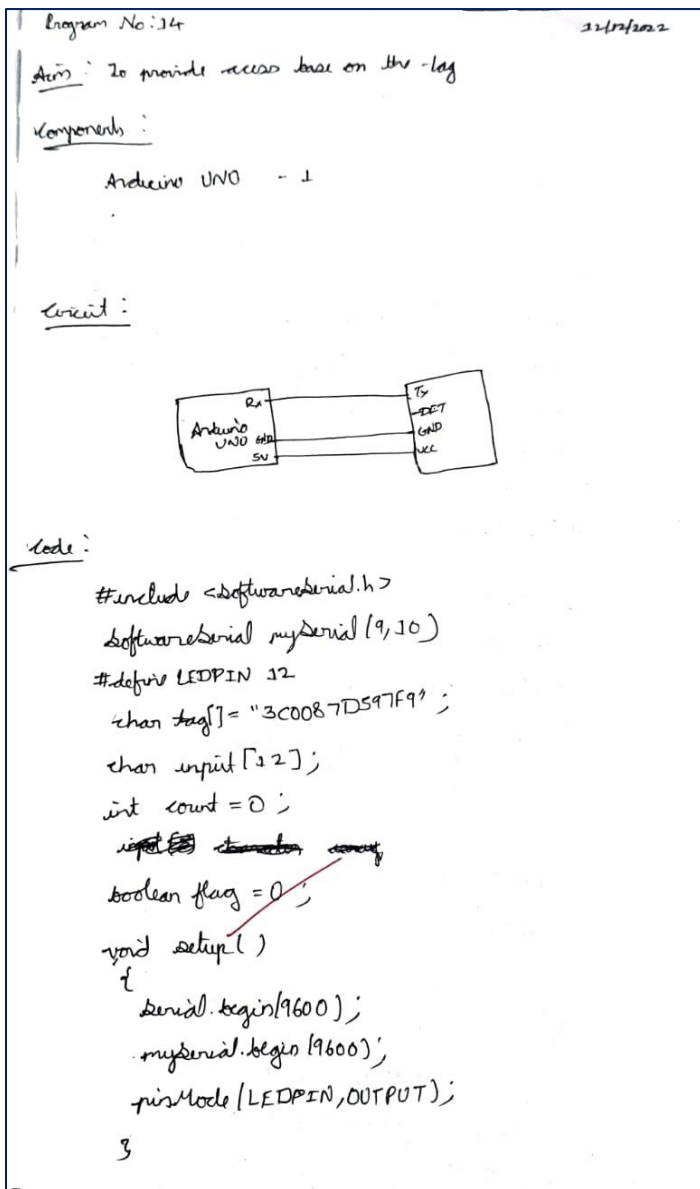 Program No:14 12/12/2022
Aim : To provide access base on the -tag
Components :
Arduino UNO - 1
Circuit :
Rx Tx
DET
Arduino
UNO GND GND
5V VCC
Code :
#include <SoftwareSerial.h>
SoftwareSerial mySerial(9,10)
#define LEDPIN 12
char tag[]= "3C0087D597F9" ;
char input[12];
int count = 0 ;
boolean flag = 0 ;
void setup( )
{
Serial.begin(9600);
mySerial.begin(9600);
pinMode(LEDPIN,OUTPUT);
}